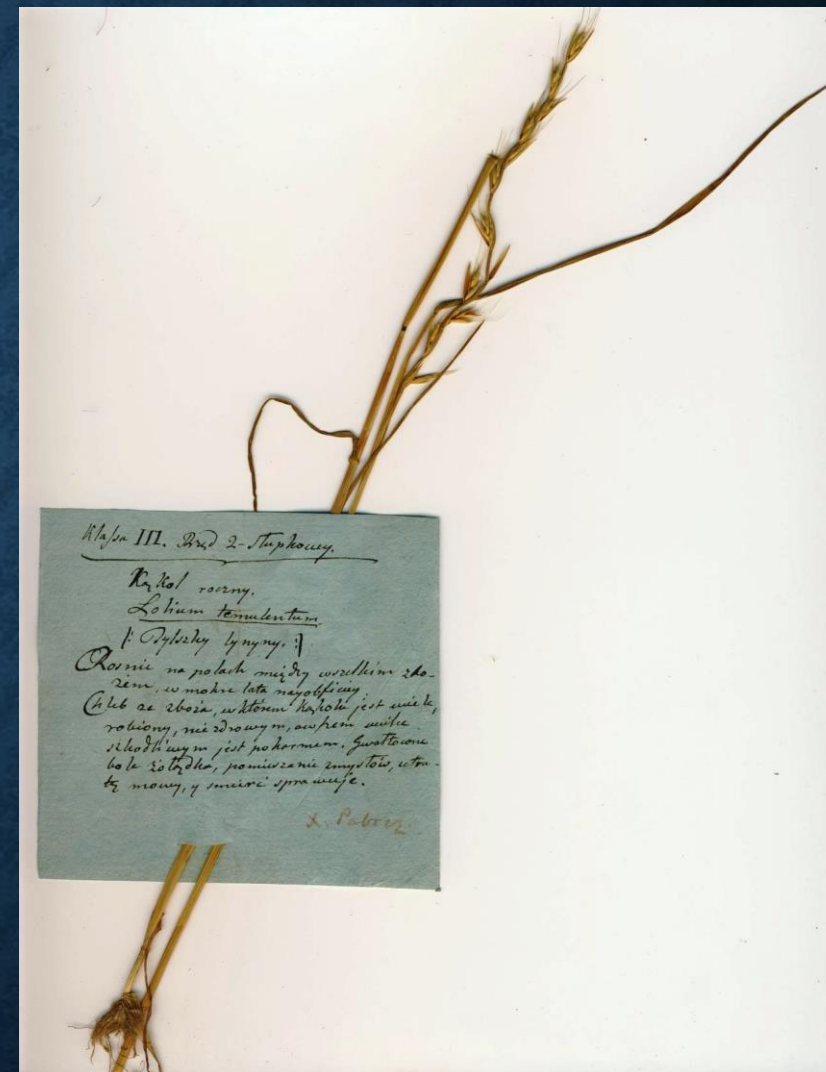 Klassa III. Rząd 2-słupkowy.
Kąkol roczny.
Lolium temulentum
|: :|
Rosnie na polach między wszelkim zbo-
żem, w mokre lata nayobficiey.
Chleb ze zboża, w którem Kąkolu jest wiele,
robiony, niezdrowym, owszem wielce
szkodliwym jest pokarmem. Gwałtowne
bole żołądka, pomieszanie zmysłów, utra-
tę mowy, y smierć sprawuje.
X. Pabrez.